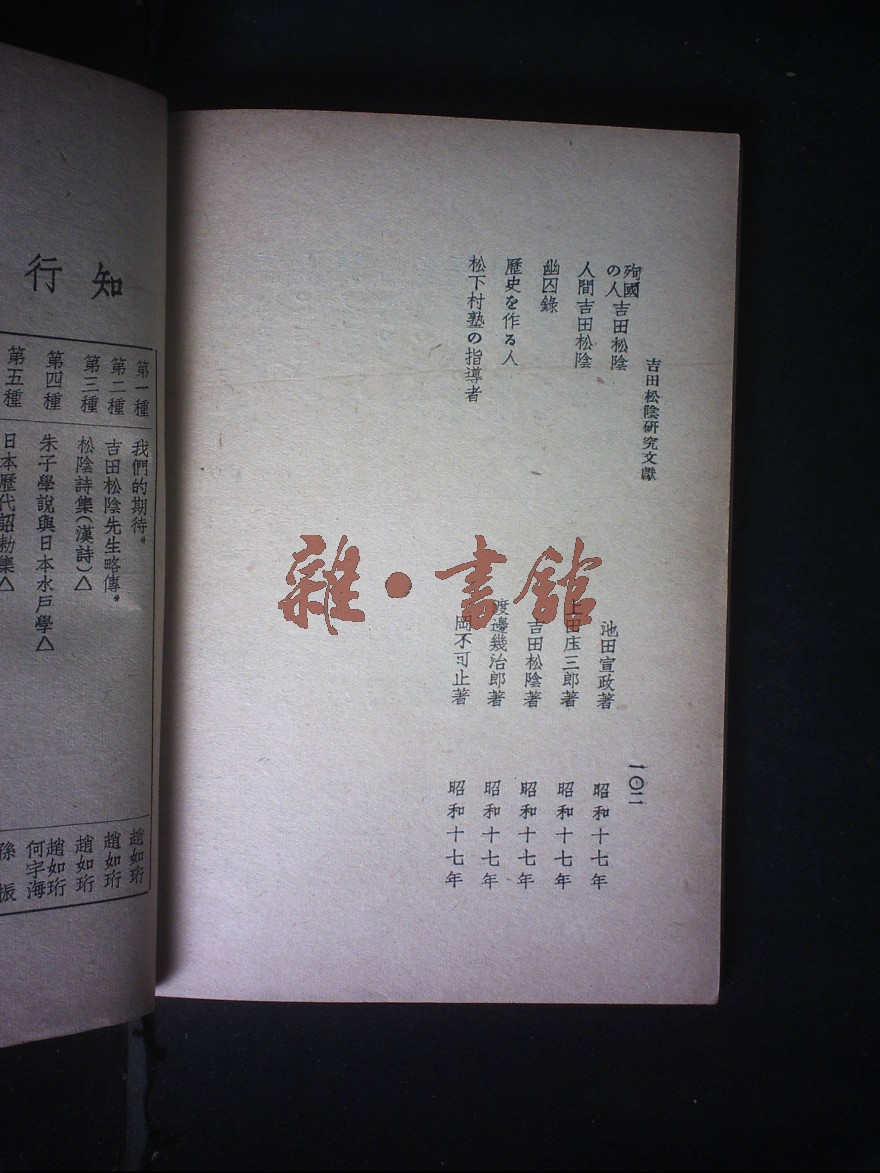 吉田松陰研究文獻
一〇二
殉國の人吉田松陰 池田宣政著 昭和十七年
人間吉田松陰 上田庄三郎著 昭和十七年
幽囚錄 吉田松陰著 昭和十七年
歷史を作る人 渡邊幾治郎著 昭和十七年
松下村塾の指導者 岡不可止著 昭和十七年
雜·書館
知行
第一種 我們的期待* 趙如珩
第二種 吉田松陰先生略傳* 趙如珩
第三種 松陰詩集(漢詩)△ 趙如珩
第四種 朱子學說與日本水戶學△ 趙如珩 何宇海
第五種 日本歷代詔勅集△ 孫振